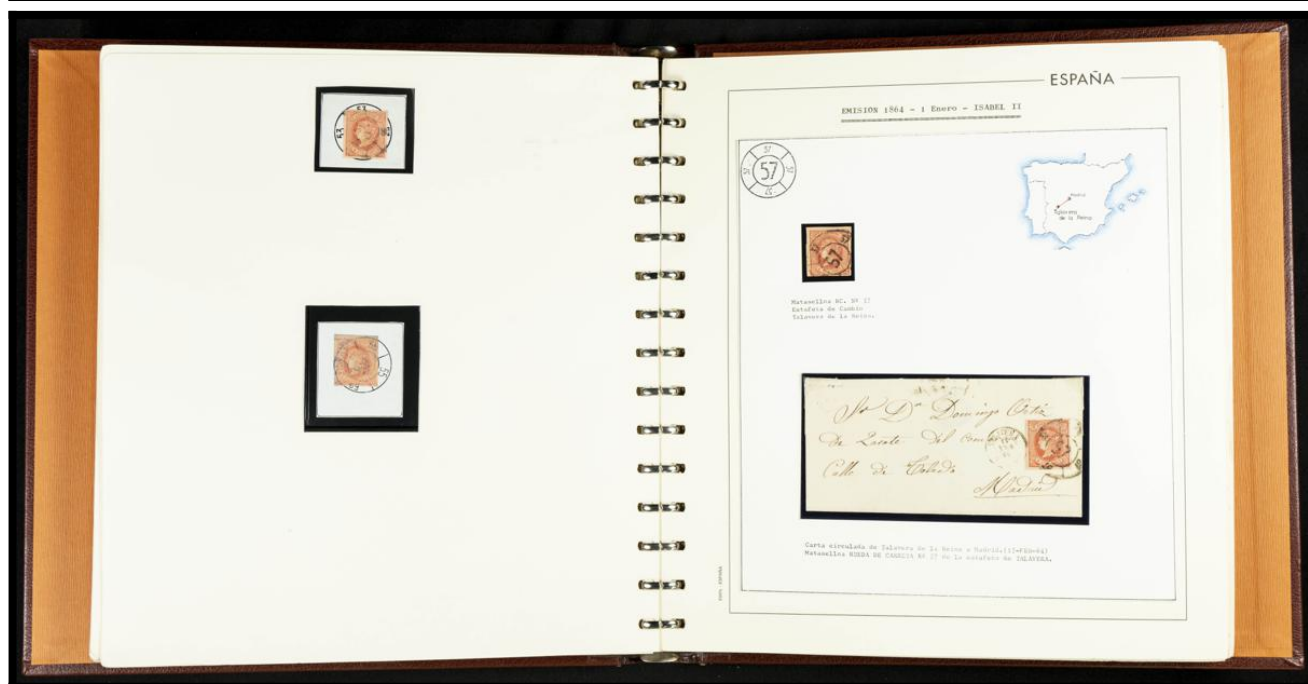 55
ESPAÑA
EMISION 1864 - 1 Enero - ISABEL II
57
57
57
57
57
Madrid
Talavera
de la Reina
57
Matasellos RC. Nº 57
Estafeta de Cambio
Talavera de la Reina.
Sr Dn Domingo Ortiz
de Zarate del comercio
Calle de Toledo
Madrid
Carta circulada de Talavera de la Reina a Madrid.(13-FEB-64)
Matasellos RUEDA DE CARRETA Nº 57 de la estafeta de TALAVERA.